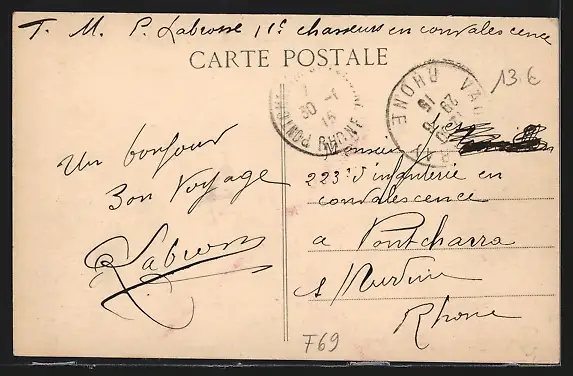 T. M. P. Labrosse 11e chasseurs en convalescence
CARTE POSTALE
13 €
RHONE
30 -1
15
RHONE
29
15
Un bonjour
Bon Voyage
Labrosse
Monsieur
223e d'infanterie en
convalescence
a Pontcharra
s/ Turdine
Rhone
F69